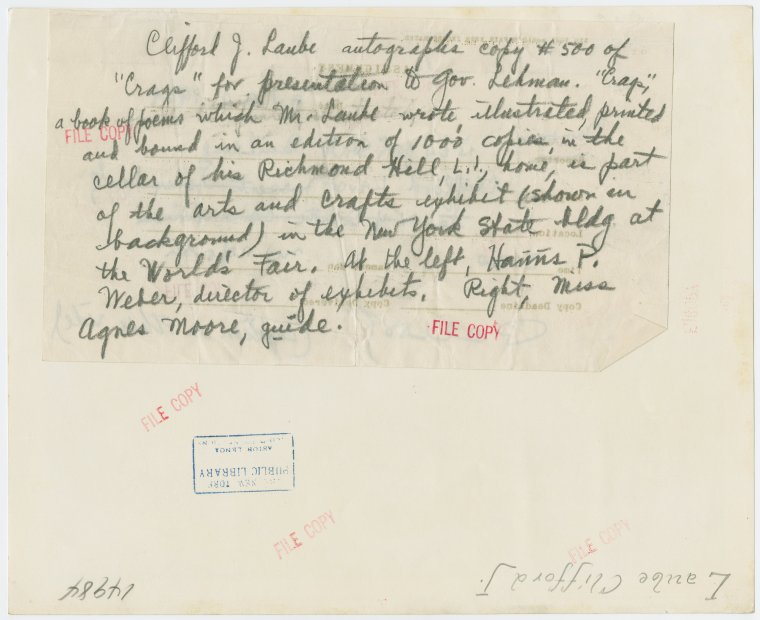 Clifford J. Laube autographs copy # 500 of
"Crags" for presentation to Gov. Lehman. "Crags",
a book of poems which Mr. Laube wrote, illustrated, printed
FILE COPY
and bound in an edition of 1000 copies, in the
cellar of his Richmond Hill, L.I., home, is part
of the arts and crafts exhibit (shown in
background) in the New York State bldg at
the World's Fair. At the left, Hanns P.
Weber, director of exhibits. Right, Miss
Agnes Moore, guide.
FILE COPY
FILE COPY
NEW YORK
PUBLIC LIBRARY
ASTOR LENOX
FILE COPY
FILE COPY
Laube Clifford J.
14984